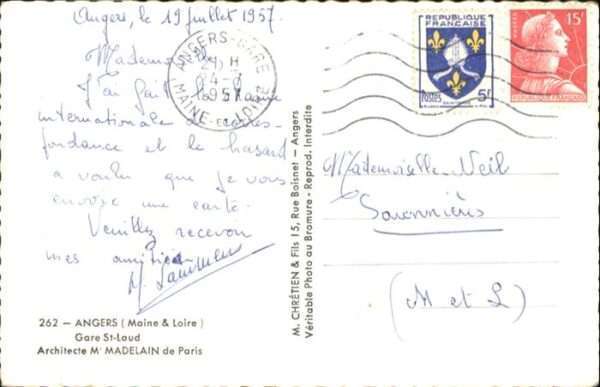 Angers, le 19 juillet 1957.
Mademoiselle
J'ai fait la chaine
internationale de corres-
pondance et le hasard
a voulu que je vous
envoie une carte.
Veuillez recevoir
mes amitiés
M.
262 — ANGERS (Maine & Loire)
Gare St-Laud
Architecte Mr MADELAIN de Paris
M. CHRÉTIEN & Fils 15, Rue Boisnet — Angers
Véritable Photo au Bromure - Reprod. Interdite
ANGERS-GARE
1957
MAINE-ET-LOIRE
REPUBLIQUE
FRANÇAISE
POSTES
5F
15F
POSTES
REPUBLIQUE FRANÇAISE
Mademoiselle Veil
Savonnières
(M et L)